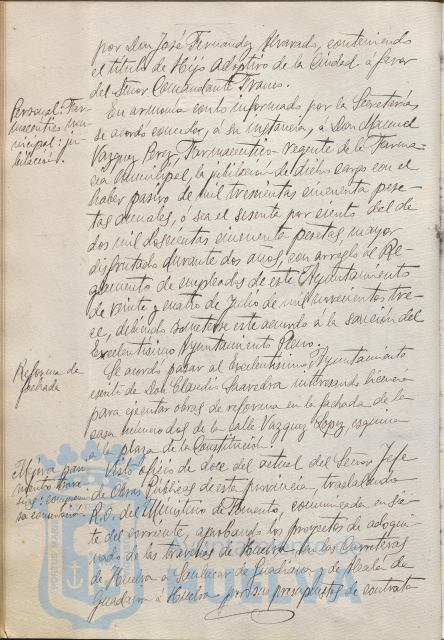 por Don José Fernandez Alvarado, conteniendo
el título de Hijo adoptivo de la Ciudad á favor
del Señor Comandante Franco.
Personal: Far-
maceutico mu-
nicipal: ju-
bilación.
En armonía con lo informado por la Secretaría,
se acordó conceder, á su instancia, á Don Manuel
Vazquez Perez, Farmaceutico regente de la Farma-
cia Municipal, la jubilación de dicho cargo con el
haber pasivo de mil trescientas cincuenta pese-
tas anuales, ó sea el sesenta por ciento del de
dos mil doscientas cincuenta pesetas, mayor
disfrutado durante dos años, con arreglo al Re-
glamento de empleados de este Ayuntamiento
de veinte y cuatro de Julio de mil novecientos tre-
ce, debiendo someterse este acuerdo á la sanción del
Excelentísimo Ayuntamiento Pleno.
Reforma de
fachada
Se acordó pasar al Excelentísimo Ayuntamiento
escrito de Don Claudio Saavedra interesando licencia
para ejecutar obras de reforma en la fachada de la
casa número dos de la calle Vazquez Lopez, esquina
á la plaza de la Constitución.
Visto oficio de doce del actual del Señor Jefe
de Obras Públicas de esta provincia, trasladando
R.O. del Ministerio de Fomento, comunicada en sie-
te del corriente, aprobando los proyectos de adoqui-
nado de las travesías de Huelva, en las Carreteras
de Huelva á Sanlucar de Guadiana y de Alcalá de
Guadaira á Huelva por sus presupuestos de contrata
PORTUS MARIS
HUELVA